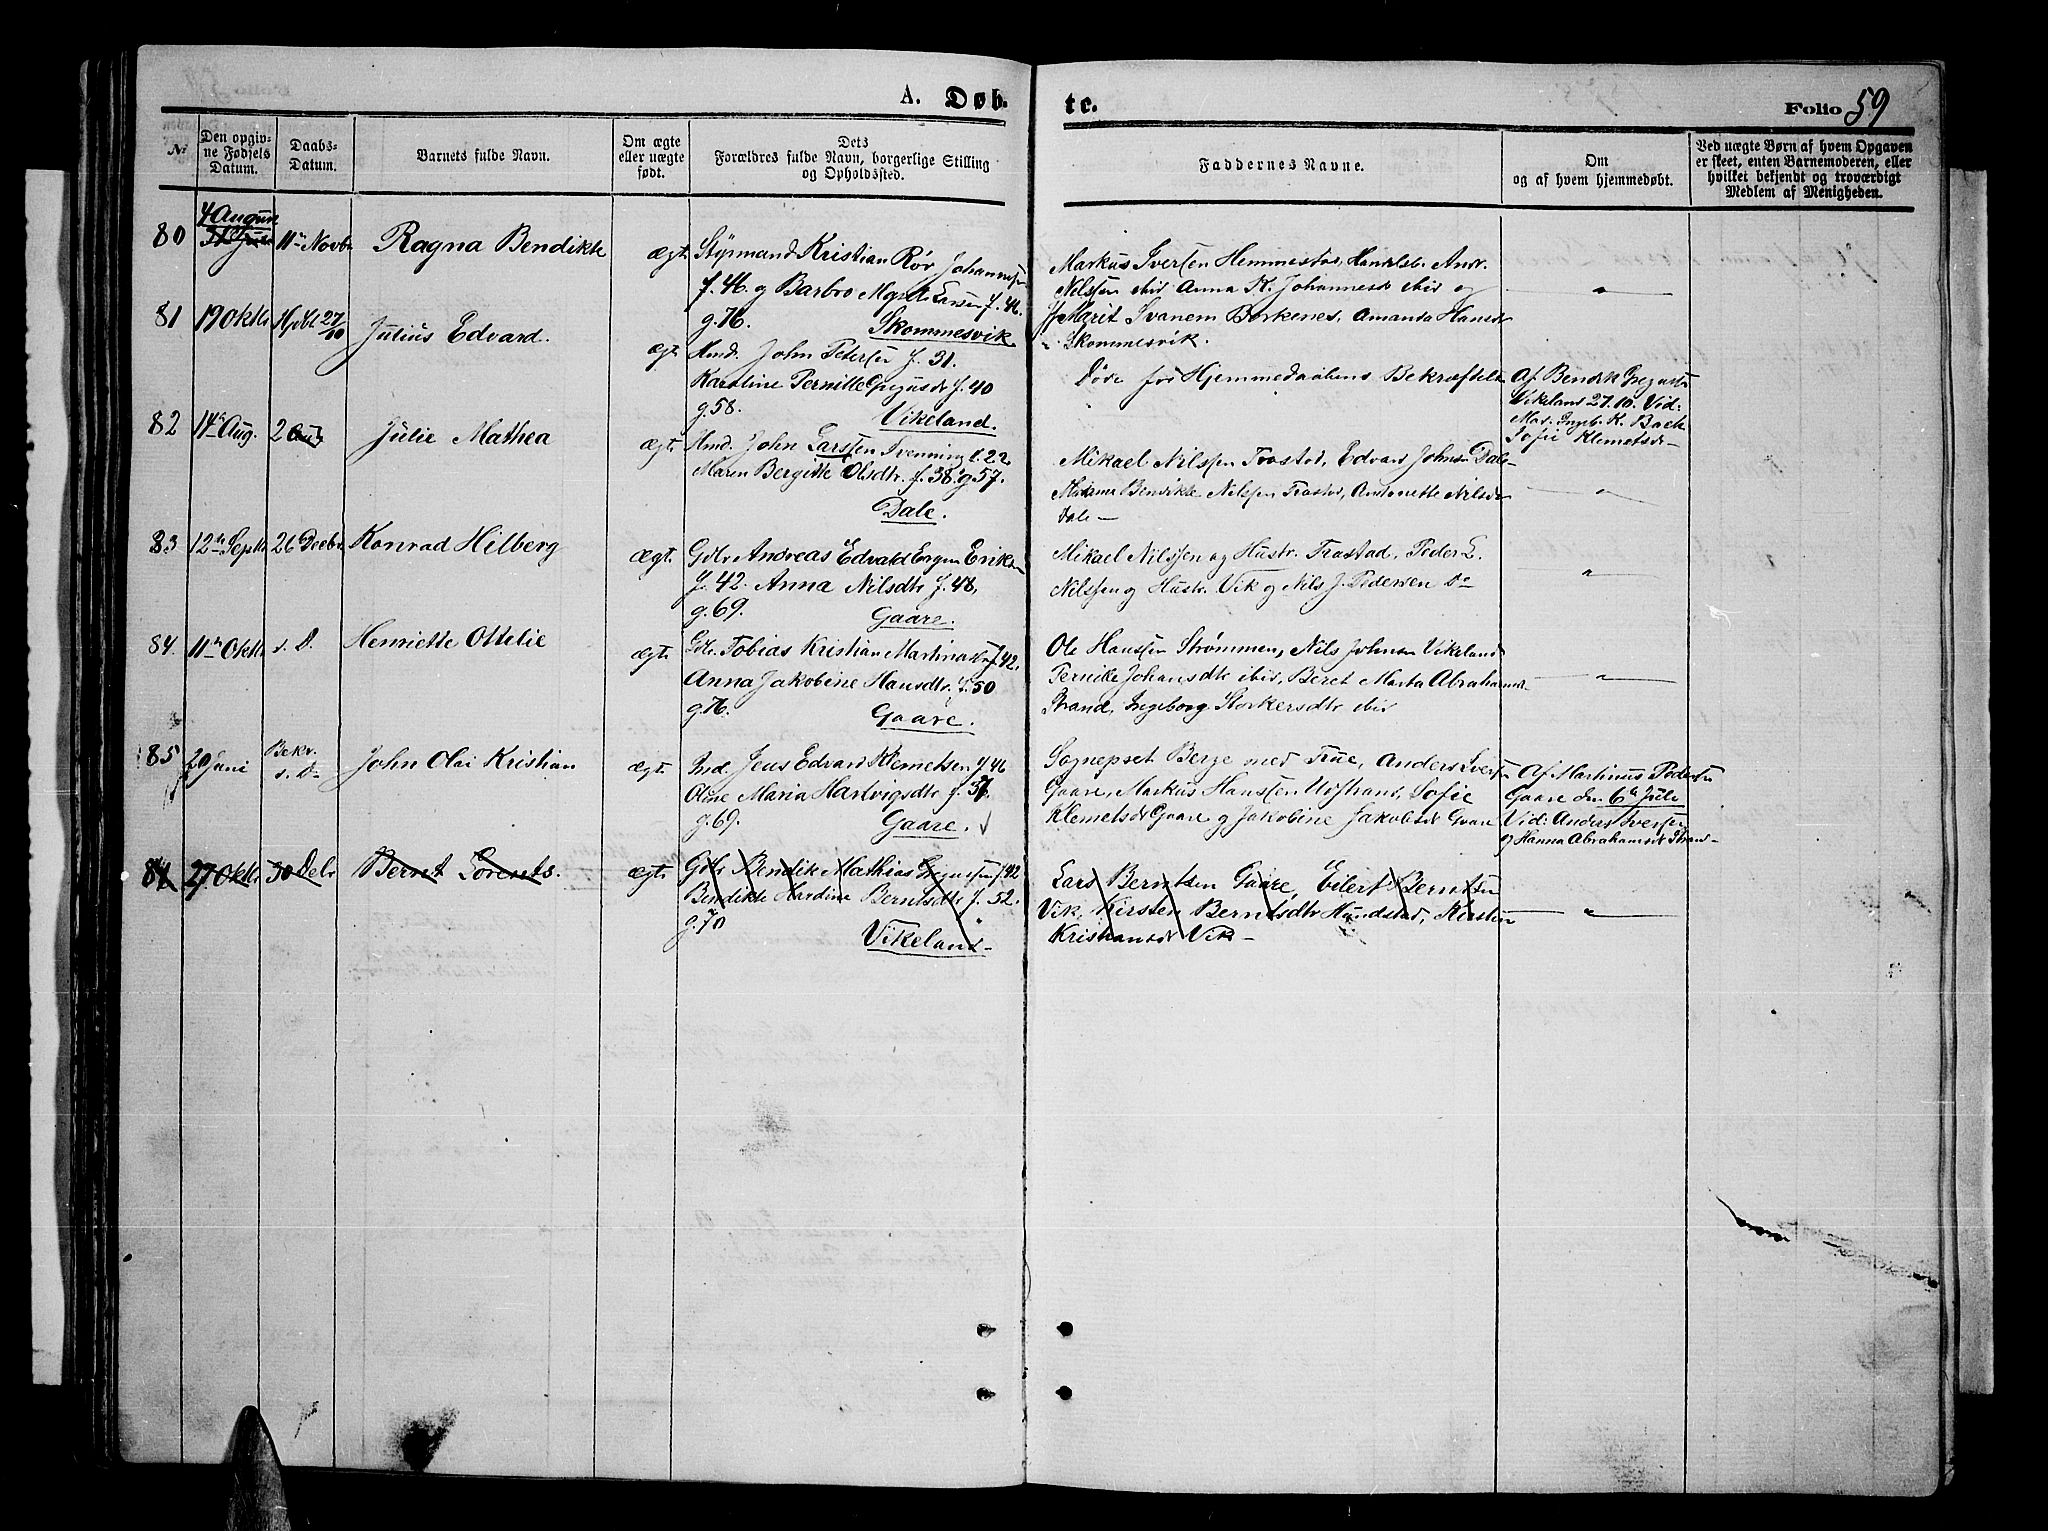 A. Døb-
te.
Folio 59
№
Den opgiv-
ne Fødsels
Datum.
Daabs-
Datum.
Barnets fulde Navn.
Om ægte
eller uægte
født.
Dets
Forældres fulde Navn, borgerlige Stilling
og Opholdssted.
Faddernes Navne.
Om
og af hvem hjemmedøbt.
Ved uægte Børn af hvem Opgaven
er skeet, enten Barnemoderen, eller
hvilket bekjendt og troværdigt
Medlem af Menigheden.
80
4 August
11te Novbr
Ragna Bendikte
ægt.
Styrmand Kristian Rør Johannesen
f. 46 og Barbro Larsen f. 46.
g. 76. Skommesvik
Markus Iversen Hemmestad, Handelsb. Andr.
Nilssen ibid Anna K. Johannesdr ibid og
Marit Ivanem Borkenes, Amanda Hansdr
Skommesvik.
"
81
19 Oktbr
27/10
Julius Edvard.
ægt.
Hmd. John Petersen f. 31.
Karoline Pernille Gregusdr f. 40
g. 58. Vikeland.
Døde før Hjemmedaabens Bekræftelse
Af Bendik Gregusen
Vikeland 27.10. Vid:
Mad. Ingeb. K. Back
Sofie Klemetsdr
82
14de Aug.
2
Julie Mathea
ægt.
Hmd. John Larssen Svenning f. 22
Maren Bergitte Olsdtr. f. 38. g. 57.
Dale.
Mikael Nilssen Trastad, Edvard Johnsen Dale
Bendikte Nilssen Trastad, Antonette Nilsdr
Dale
"
83
12te Septbr
26 Decbr
Konrad Hilberg
ægt.
Gdbr Andreas Edvald Eriksen
f. 42. Anna Nilsdtr f. 48.
g. 69. Gaare.
Mikael Nilssen og Hustr. Trastad, Peder L.
Nilssen og Hustr. Vik og Nils J. Pedersen Do
"
84.
11te Oktbr
s. D.
Henriette Ottelie
ægt.
Gdbr. Tobias Kristian Martinussen f. 42.
Anna Jakobine Hansdtr f. 50
g. 76. Gaare.
Ole Hanssen Strømmen, Nils Johnsen Vikeland
Pernille Johansdtr ibid, Beret Marta Abrahamsdr
Strand, Ingeborg Storkersdtr ibid
"
85
20 Juni
Bekr.
s. D.
John Olai Kristian
ægt.
Ind. Jens Edvard Klemetsen f. 46
Oline Maria Hartvigsdtr f. 37.
g. 69. Gaare.
Sognepret Berge med Frue, Anders Iversen
Gaare, Markus Hanssen Udstrand, Sofie
Klemetsdr Gaare og Jakobine Jakobsdr Gaare
Af Martinus Pedersen
Gaare den 6te Juli
Vid: Anders Iversen
og Hanna Abrahamsdr Strand
27 Oktbr
30 Debr
Berret Lorents.
ægt.
Gdbr Bendik Mathias Gregussen f. 42
Bendikte Hardine Berntsdtr f. 52.
g. 70
Vikeland
Lars Berntsen Gaare, Eilert Berntsen
Vik, Kirsten Berntsdtr Hundstad, Kirsten
Kristiansdr Vik
"